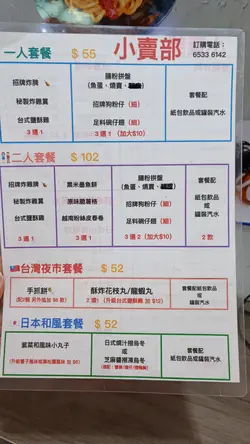 小賣部
訂購電話:
6533 6142
一人套餐 $ 55
招牌炸脾
秘製炸雞翼
台式鹽酥雞
3 選 1
腸粉拼盤
(魚蛋、燒賣、
招牌狗粉仔 (細)
足料碗仔翅 (細)
3 選 1 (加大$10)
套餐配
紙包飲品或罐裝汽水
二人套餐 $ 102
招牌炸雞脾
秘製炸雞翼
台式鹽酥雞
3 選 1
黑米墨魚餅
原味脆薯格
越南粉絲皮春卷
3 選 1
腸粉拼盤
(魚蛋、燒賣、
招牌狗粉仔 (細)
足料碗仔翅 (細)
3 選 2 (加大$10)
套餐配
紙包飲品或
罐裝汽水
2 款
台灣夜市套餐 $ 52
手抓餅
酥炸花枝丸/龍蝦丸
2 選1 (升級台式鹽酥雞 加 $10)
套餐配紙包飲品或
罐裝汽水
日本和風套餐 $ 52
紫菜和風味小丸子
日式燒汁撈烏冬
或
芝麻醬撈凍烏冬
套餐配
紙包飲品或罐裝汽水